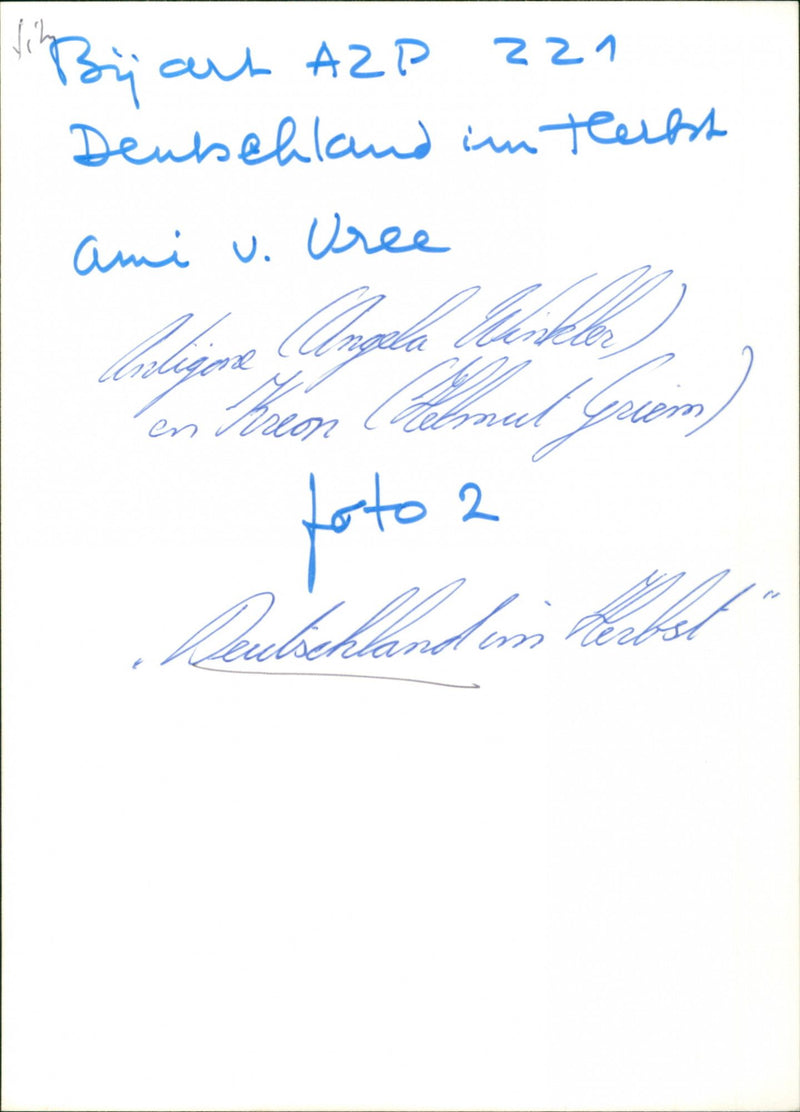 film
Bij art AZP 221
Deutschland im Herbst
ami v. Vree
Antigone (Angela Winkler)
en Kreon (Helmut Griem)
foto 2
"Deutschland im Herbst"